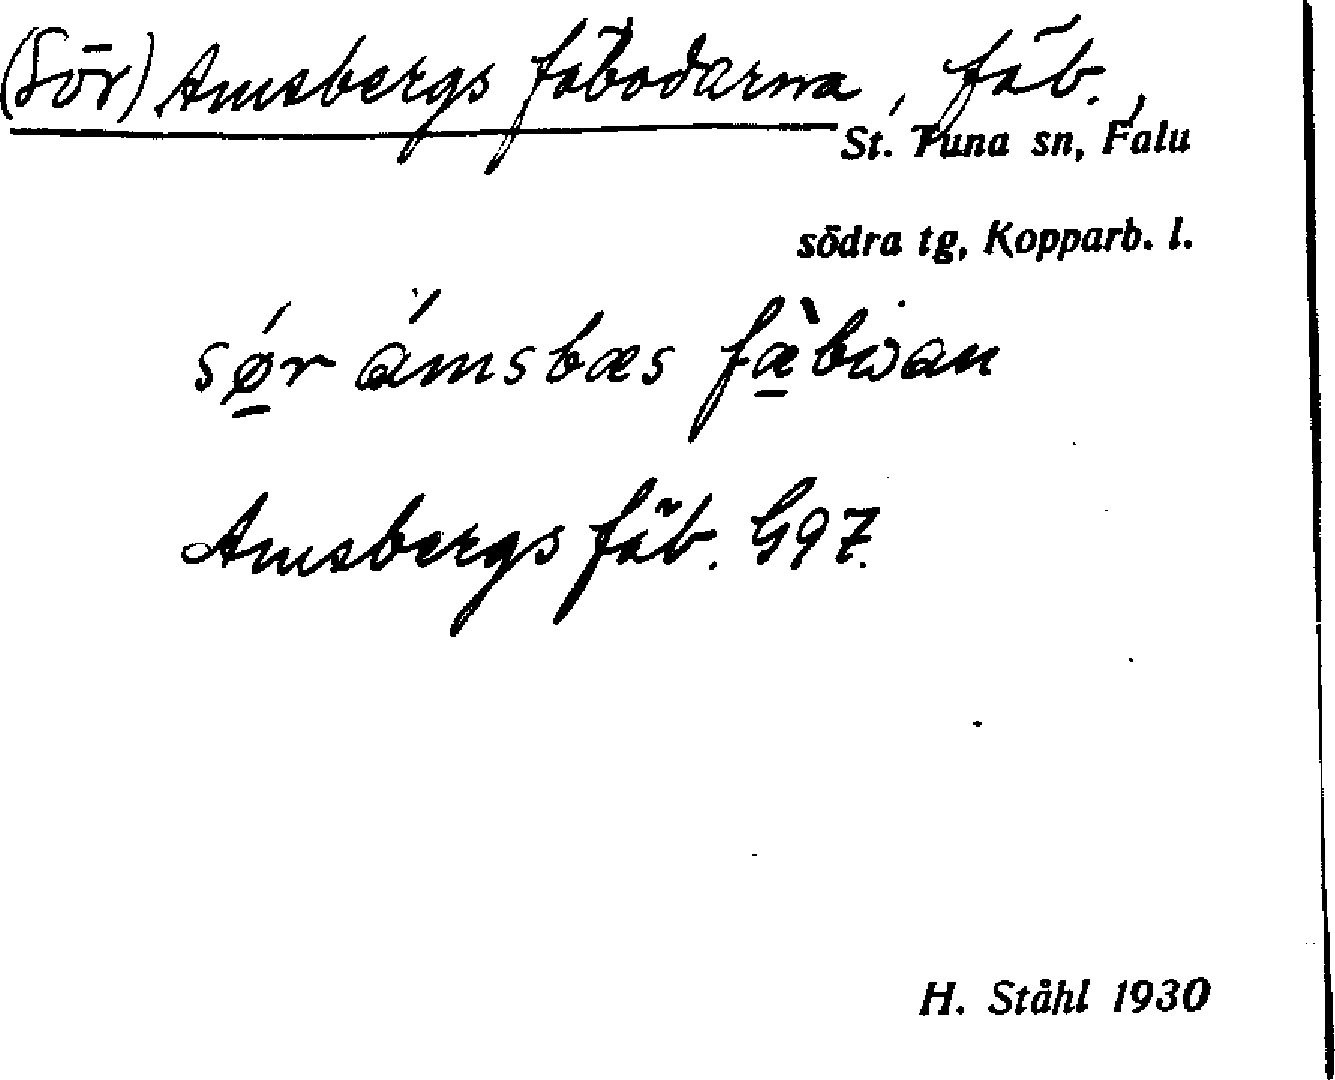 (Sör) Amsbergs fäbodarna, fäb.,
St. Tuna sn, Falu
södra tg, Kopparb. l.
sǿ̱r ámsbæs fæ̱̀bωan
Amsbergs fäb. G97.
H. Ståhl 1930